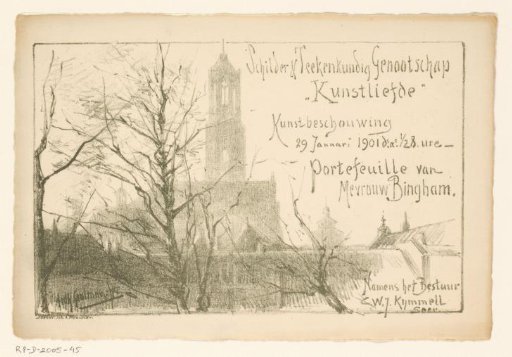 Schilder & Teekenkundig Genootschap
"Kunstliefde"
Kunstbeschouwing
29 Januari 1901 d.a. ½8 ure_
Portefeuille van
Mevrouw Bingham.
Namens het Bestuur
W.J. Kymmell
Secr.
RP-D-2005-45